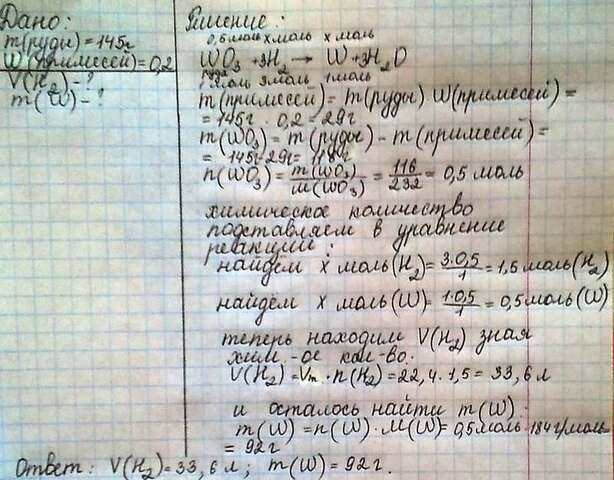 Дано:
m(руды)=145г
W(примесей)=0,2
V(H₂)-?
m(W)-?
Решение:
0,5моль хмоль х моль
WO₃+3H₂→W+3H₂O
1моль 3моль 1моль
m(примесей)=m(руды)·W(примесей)=
=145г·0,2=29г
m(WO₃)=m(руды)-m(примесей)=
=145г-29г=116г
n(WO₃)=m(WO₃)/M(WO₃)=116/232=0,5 моль
химическое количество
подставляем в уравнение
реакции:
найдём х моль(H₂)=3·0,5/1=1,5моль(H₂)
найдём х моль(W)=1·0,5/1=0,5моль(W)
теперь находим V(H₂) зная
хим.-ое кол-во:
V(H₂)=Vm·n(H₂)=22,4·1,5=33,6л
и осталось найти m(W):
m(W)=n(W)·M(W)=0,5моль·184г/моль
=92г
Ответ: V(H₂)=33,6л; m(W)=92г.